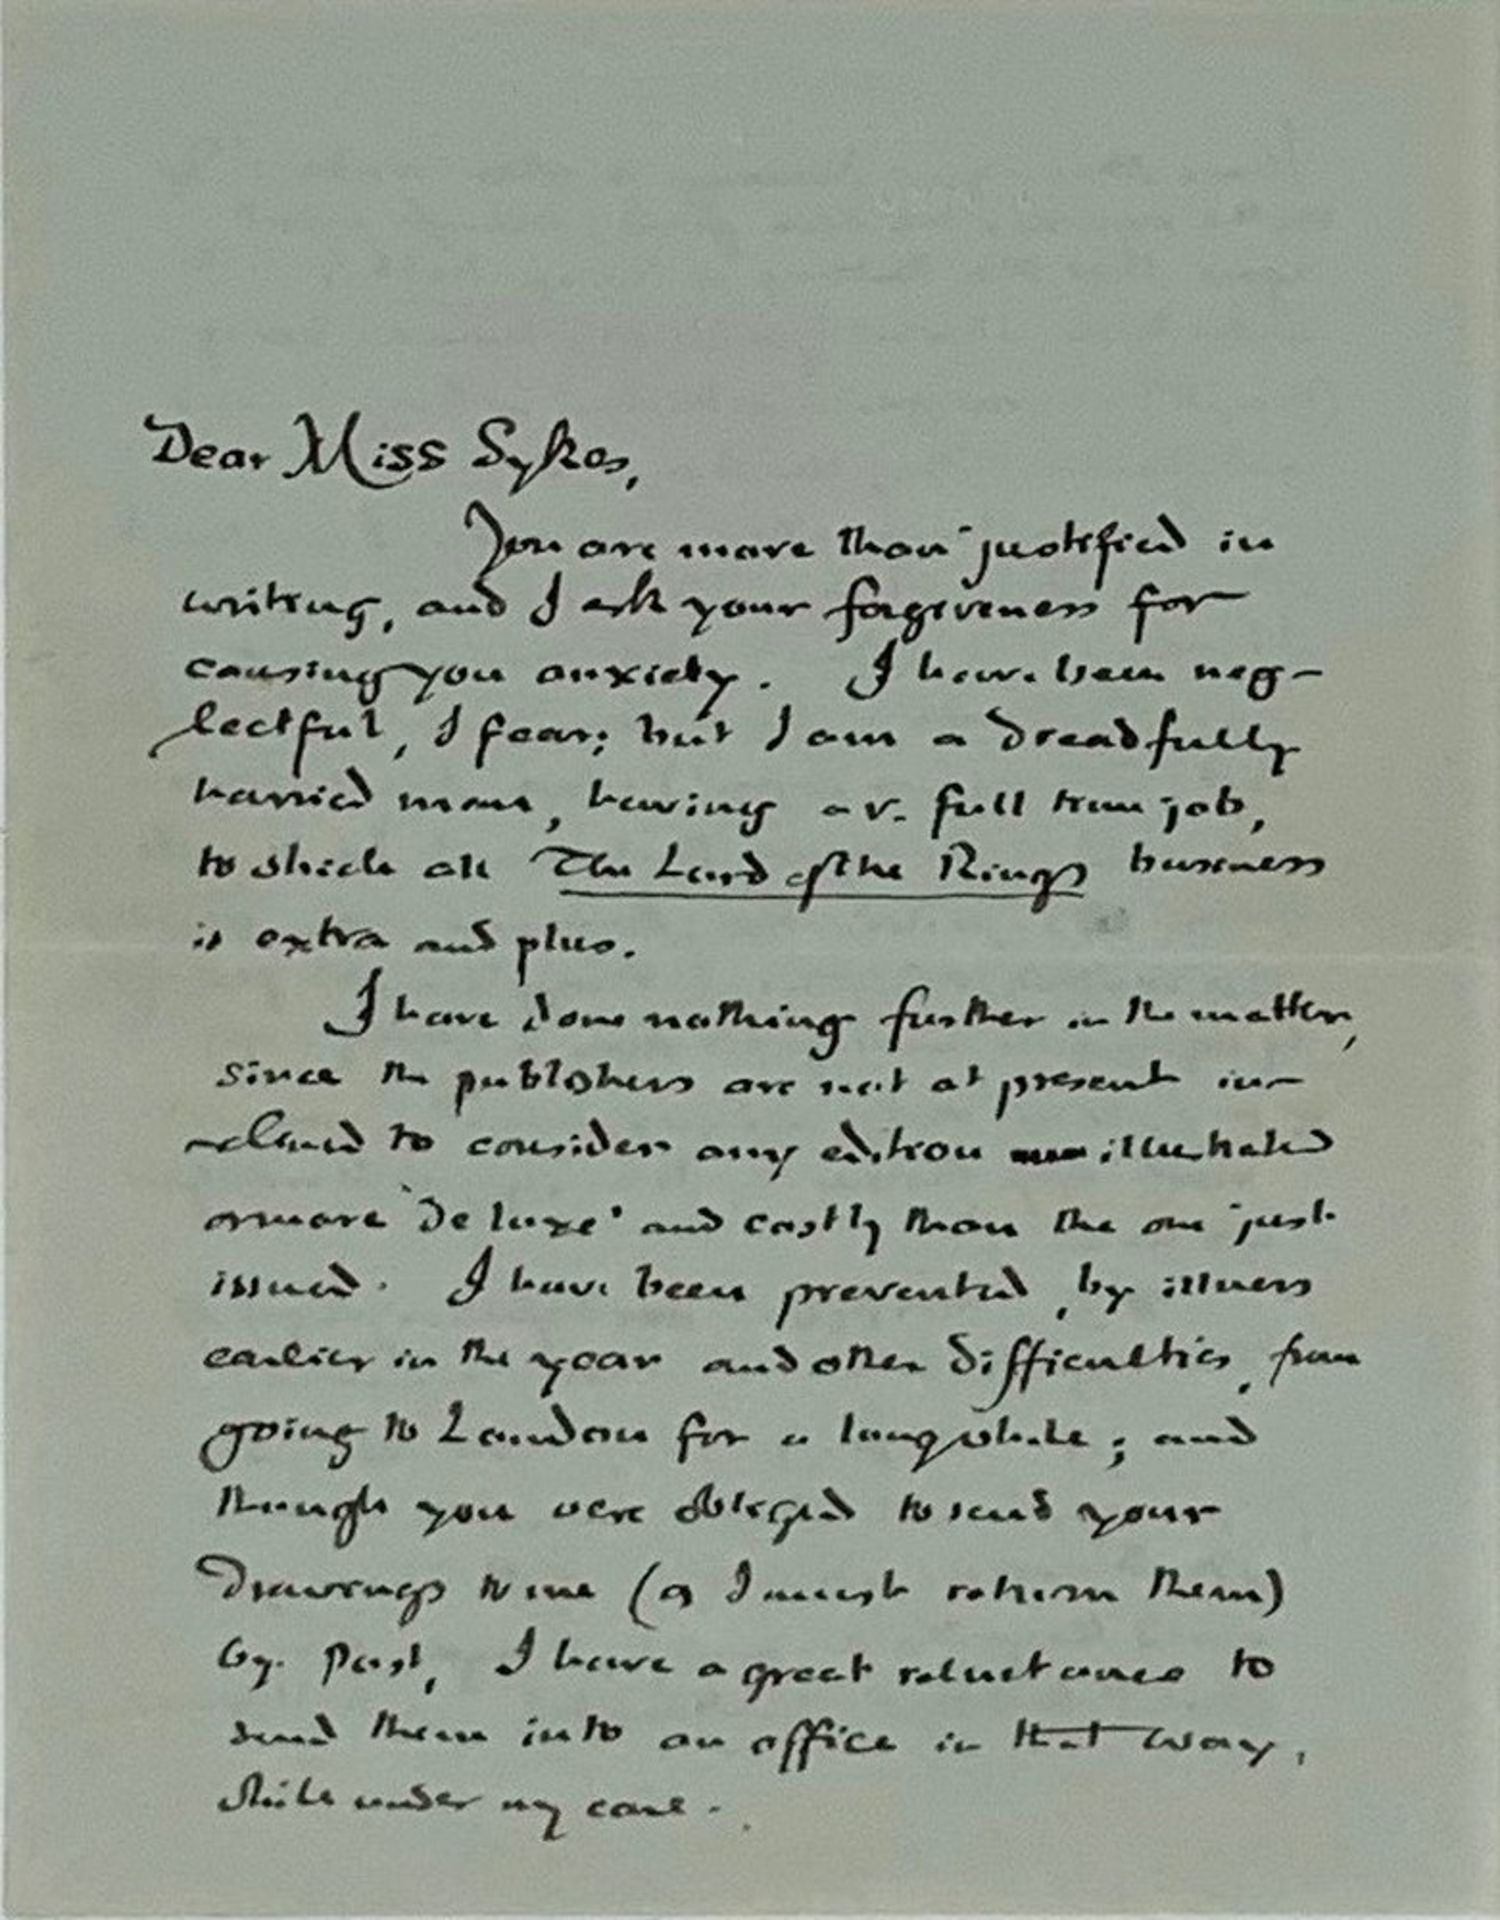 Dear Miss Sykes,
You are more than justified in
writing, and I ask your forgiveness for
causing you anxiety. I have been neg-
lectful, I fear; but I am a dreadfully
harried man, having a v. full time job,
to which all The Lord of the Rings business
is extra and plus.
I have done nothing further in the matter,
since the publishers are not at present in-
clined to consider any edition illustrated
or more 'de luxe' and costly than the one just
issued. I have been prevented, by illness
earlier in the year and other difficulties, from
going to London for a long while; and
though you were obliged to send your
drawings to me (as I must return them)
by post, I have a great reluctance to
send them into an office in that way,
while under my care.